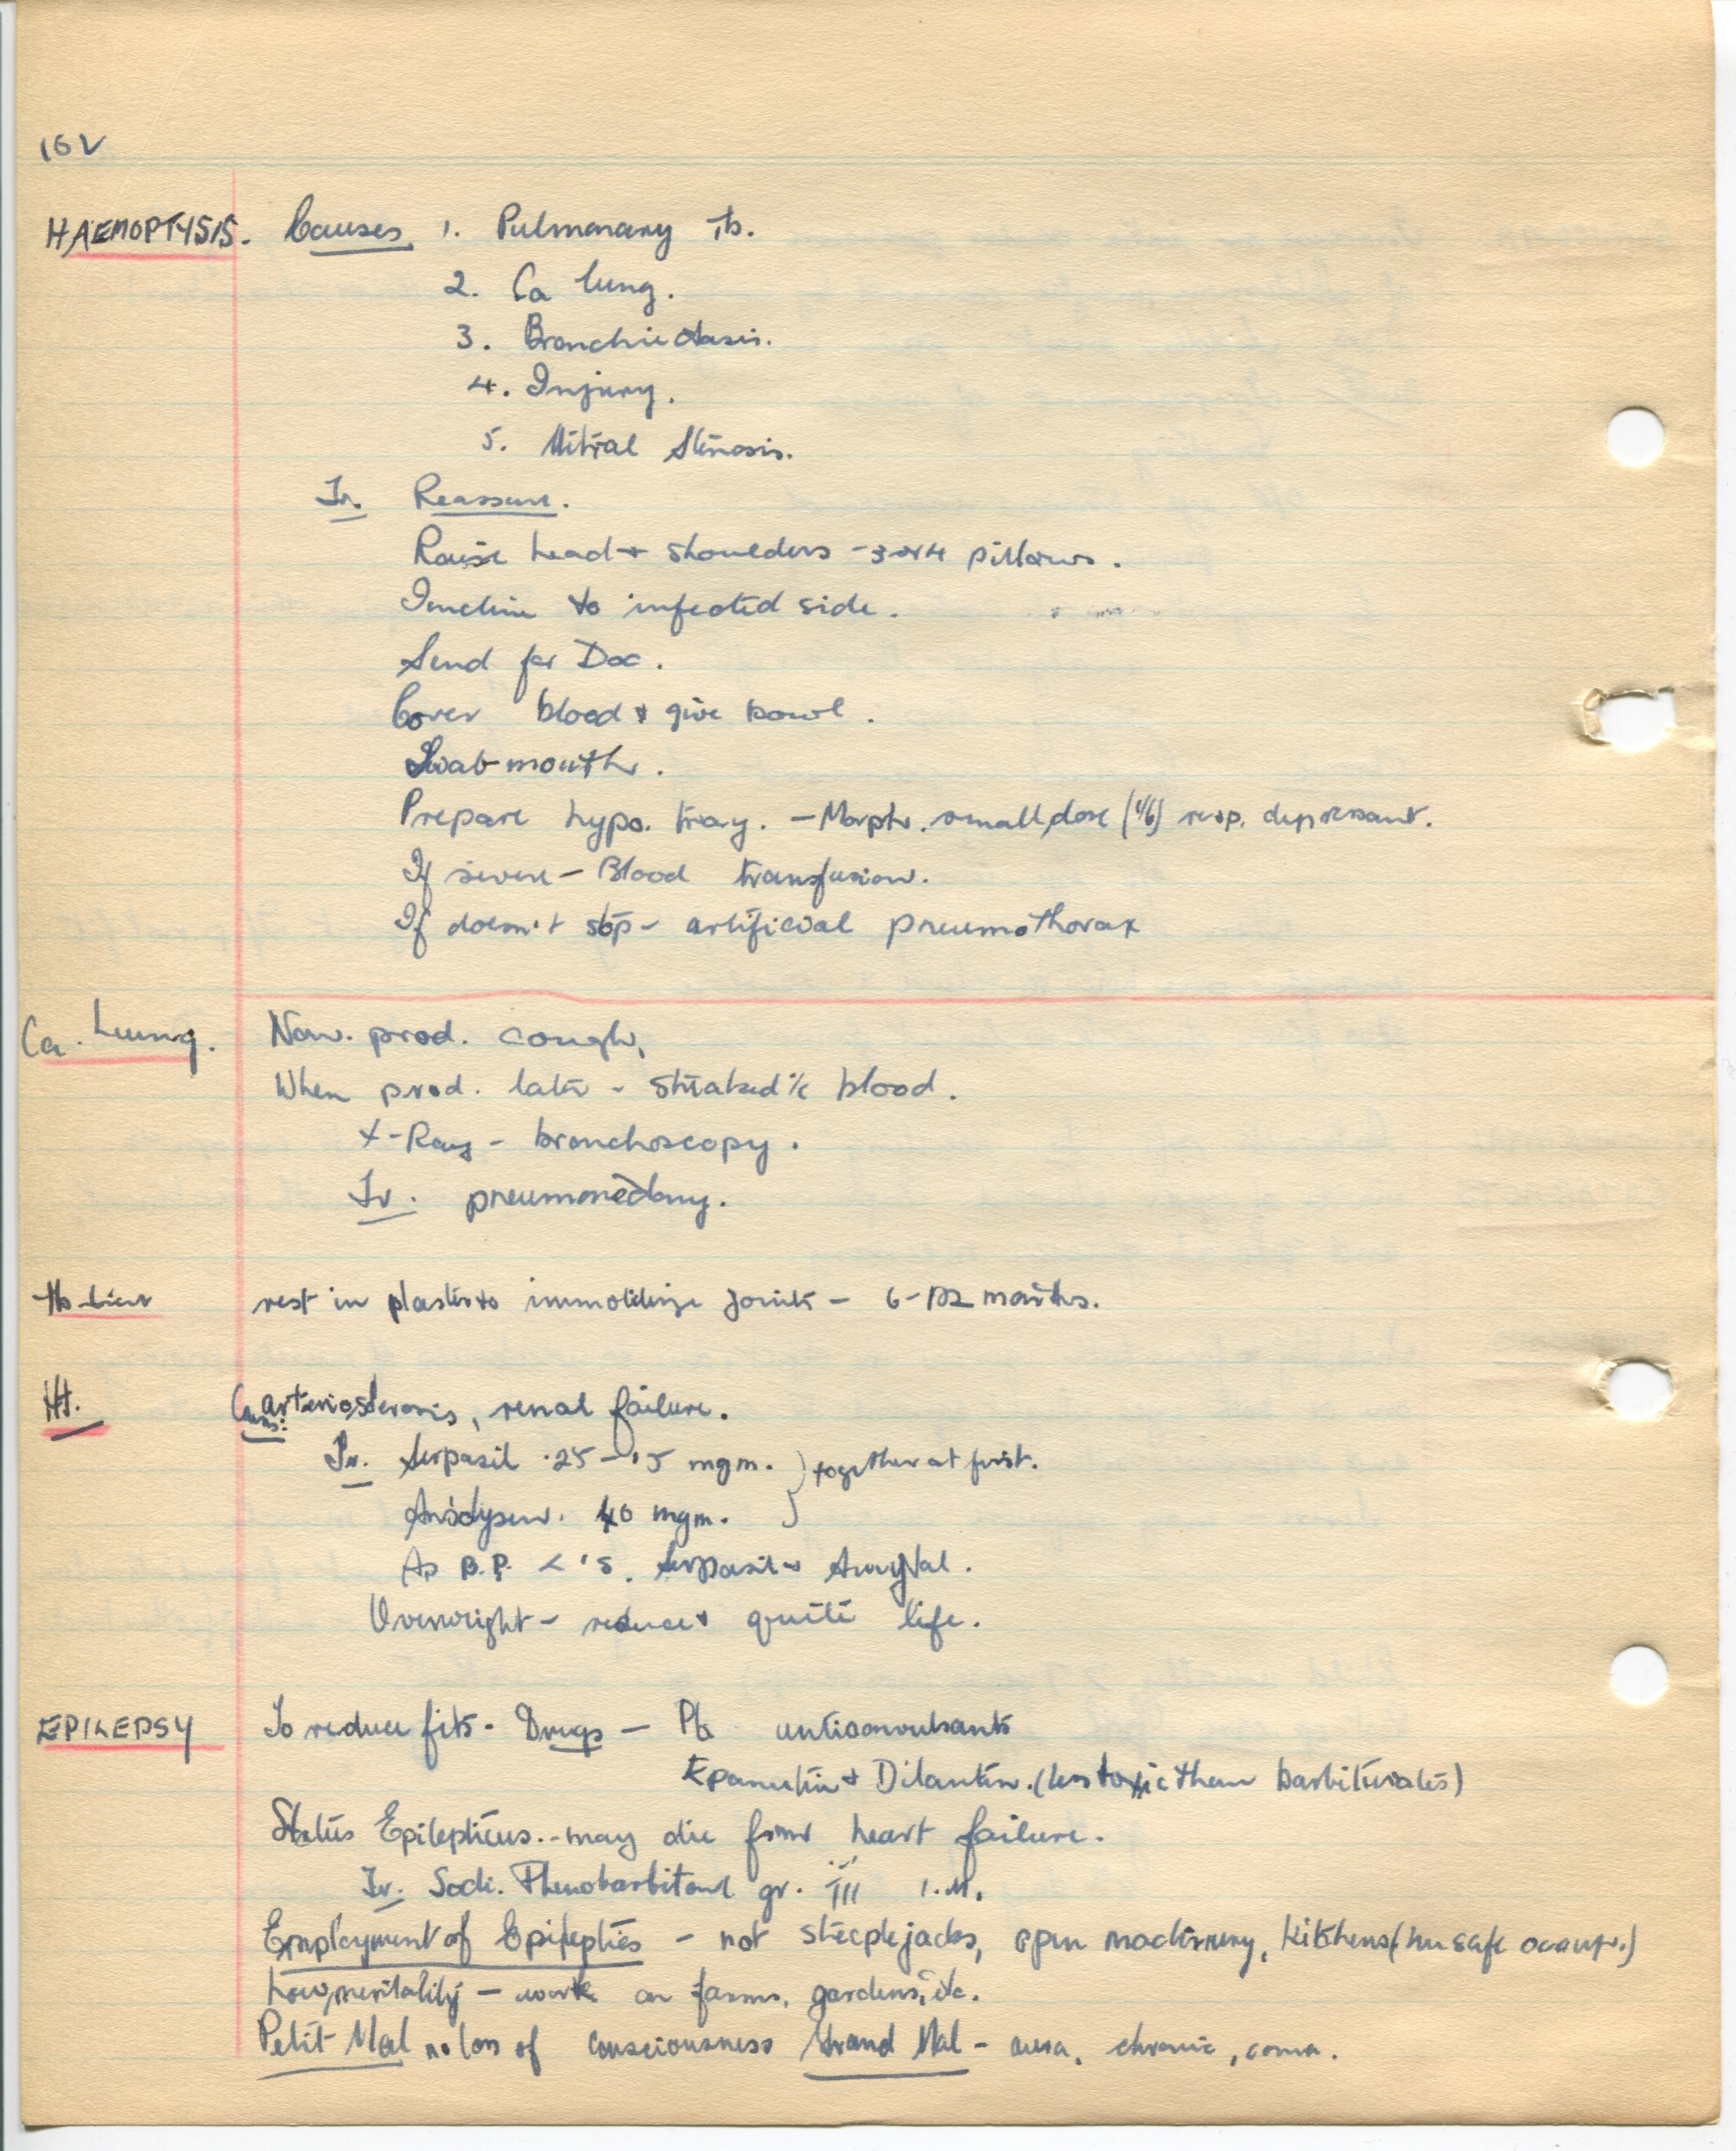 16V
HAEMOPTYSIS. Causes 1. Pulmonary Tb.
2. Ca lung.
3. Bronchiectasis.
4. Injury.
5. Mitral Stenosis.
Tr. Reassure.
Raise head + shoulders - 3 or 4 pillows.
Incline to infected side.
Send for Doc.
Cover blood + give bowl.
Swab mouth.
Prepare hypo. tray. - Morph. small dose (1/6) resp. depressant.
If severe - Blood transfusion.
If doesn't stop - artificial pneumothorax
Ca. Lung. Non. prod. cough,
When prod. later - streaked c blood.
X-Ray - bronchoscopy.
Tr. pneumonectomy.
Tb rest in plaster to immobilize joint - 6-12 months.
Ht. Caus: arteriosclerosis, renal failure.
Tr. Serpasil .25 - .5 mgm. } together at first.
Ansolysen. 40 mgm. }
As B.P. < 's. Serpasil + Amytal.
Overweight - reduce + quite life.
EPILEPSY To reduce fits - Drugs - Pb anticonvulsants
Epanutin + Dilantin. (less toxic than barbiturates)
Status Epilepticus. - may die from heart failure.
Tr. Sodi. Phenobarbitone gr. III I.M.
Employment of Epileptics - not steeplejacks, open machinery, kitchens (no safe occup.)
Low mentality - work on farms, gardens, etc.
Petit Mal no loss of consciousness Grand Mal - aura, chronic, coma.